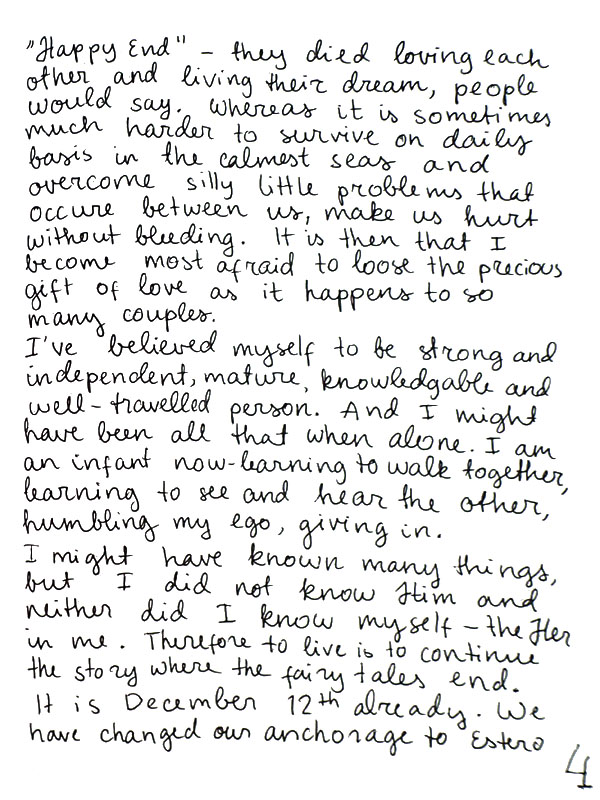 "Happy End" - they died loving each
other and living their dream, people
would say. Whereas it is sometimes
much harder to survive on daily
basis in the calmest seas and
overcome silly little problems that
occure between us, make us hurt
without bleeding. It is then that I
become most afraid to loose the precious
gift of love as it happens to so
many couples.
I've believed myself to be strong and
independent, mature, knowledgable and
well-travelled person. And I might
have been all that when alone. I am
an infant now-learning to walk together,
learning to see and hear the other,
humbling my ego, giving in.
I might have known many things,
but I did not know Him and
neither did I know myself - the Her
in me. Therefore to live is to continue
the story where the fairy tales end.
It is December 12th already. We
have changed our anchorage to Estero
4